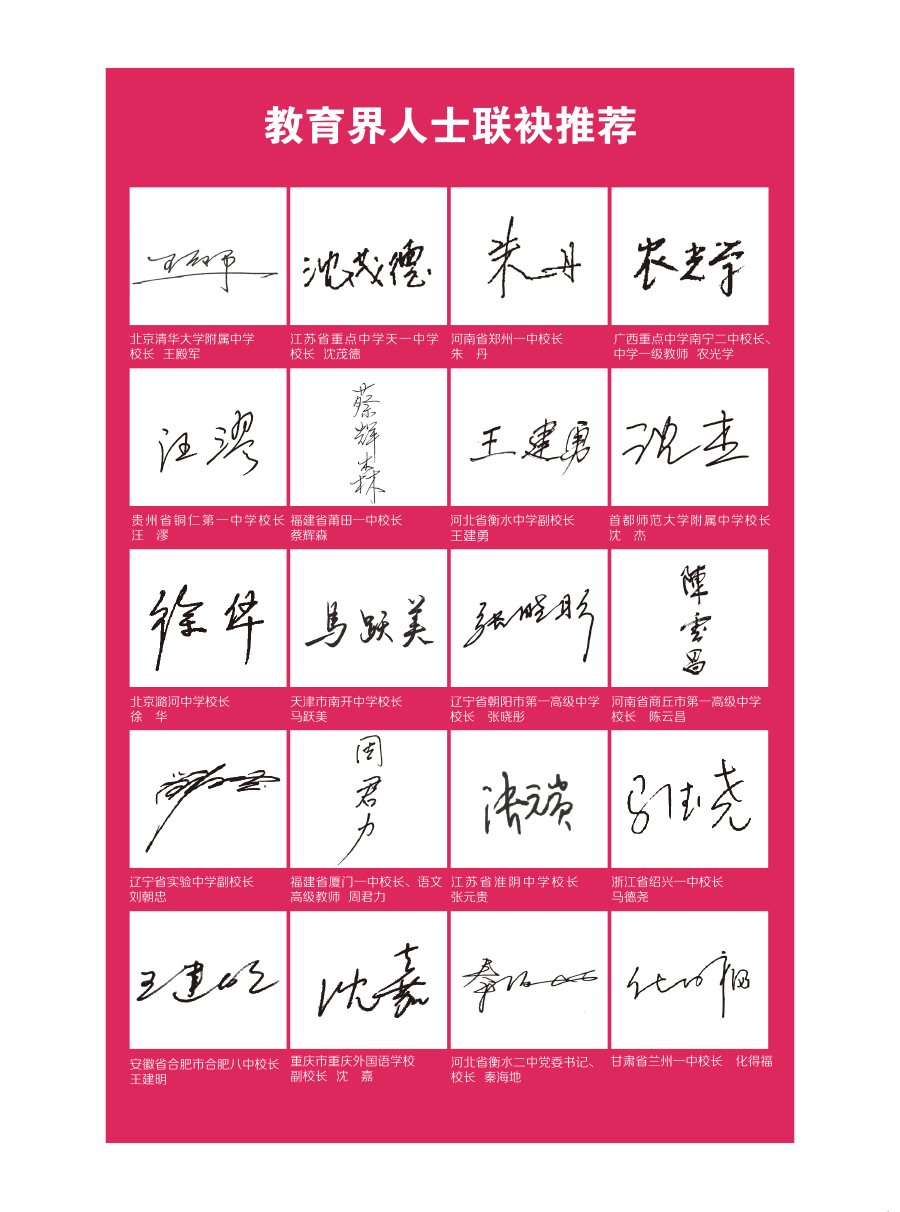 教育界人士联袂推荐
北京清华大学附属中学
校长 王殿军
江苏省重点中学天一中学
校长 沈茂德
河南省郑州一中校长
朱 丹
广西重点中学南宁二中校长、
中学一级教师 农光学
汪漻
蔡辉森
王建勇
沈杰
贵州省铜仁第一中学校长
汪 漻
福建省莆田一中校长
蔡辉森
河北省衡水中学副校长
王建勇
首都师范大学附属中学校长
沈 杰
徐华
馬跃美
张晓彤
陳雲昌
北京潞河中学校长
徐 华
天津市南开中学校长
马跃美
辽宁省朝阳市第一高级中学
校长 张晓彤
河南省商丘市第一高级中学
校长 陈云昌
周君力
辽宁省实验中学副校长
刘朝忠
福建省厦门一中校长、语文
高级教师 周君力
江苏省淮阴中学校长
张元贵
浙江省绍兴一中校长
马德尧
安徽省合肥市合肥八中校长
王建明
重庆市重庆外国语学校
副校长 沈 嘉
河北省衡水二中党委书记、
校长 秦海地
甘肃省兰州一中校长 化得福